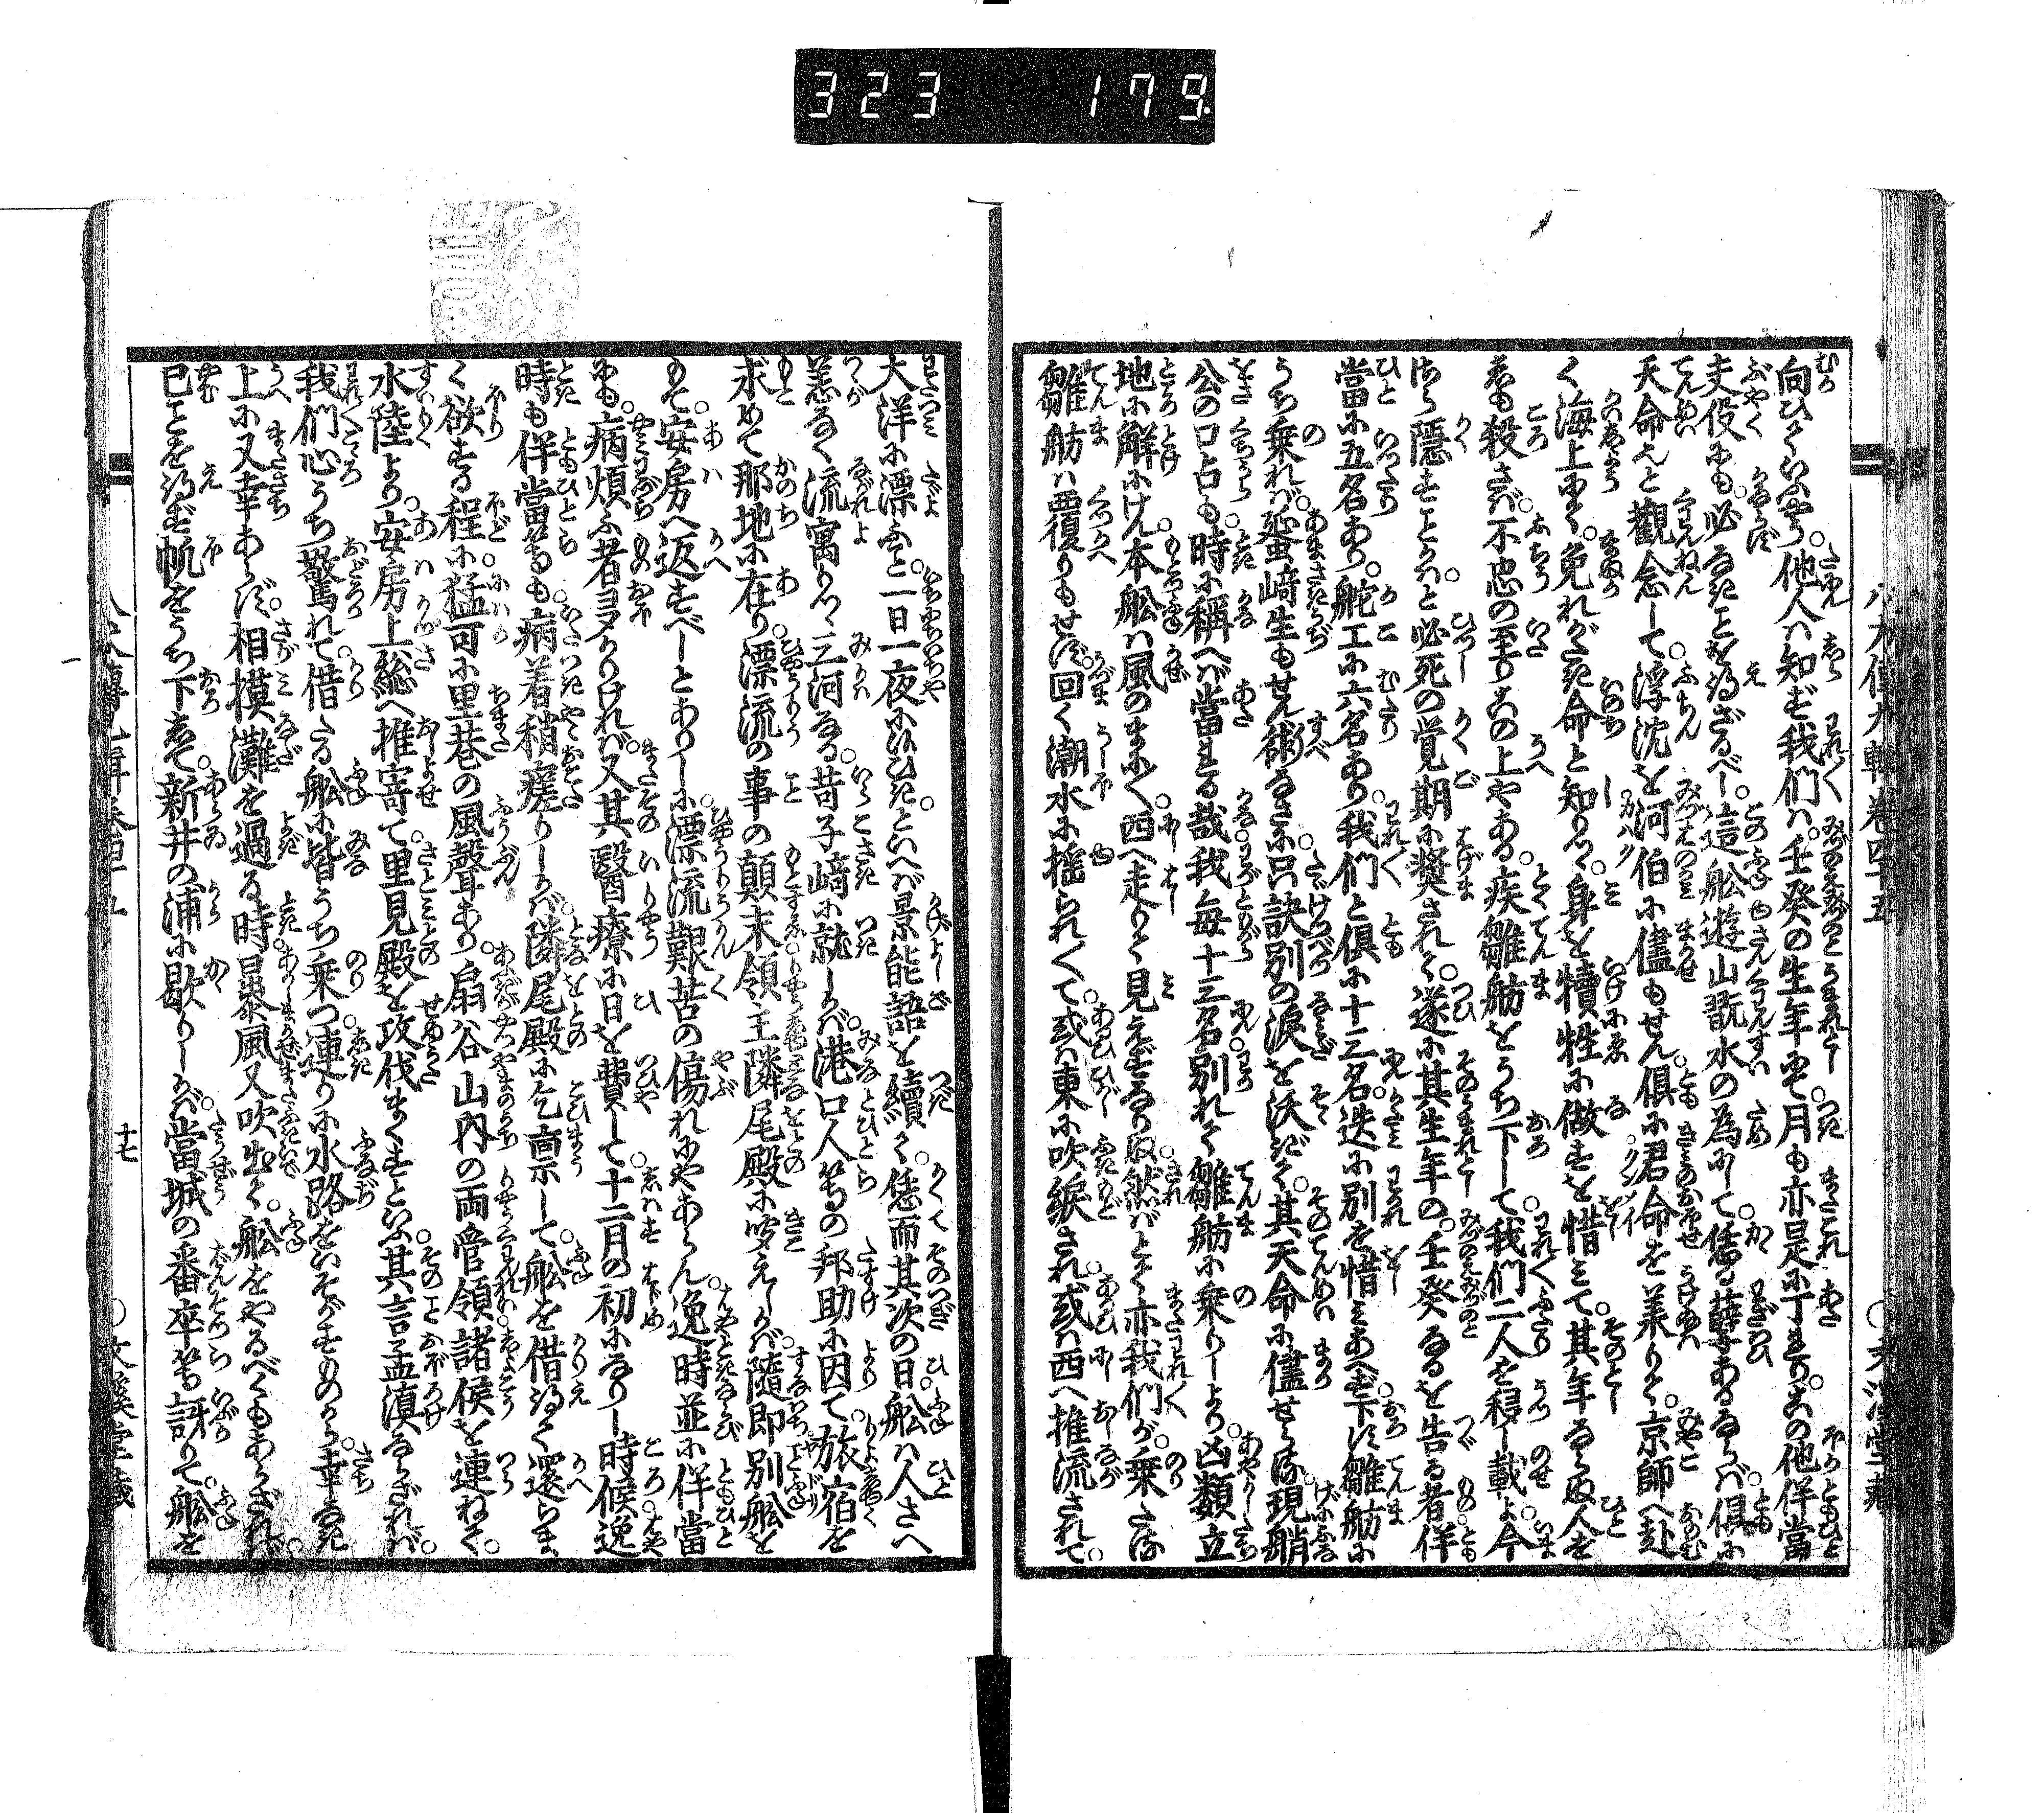 323 179
向ひていふやう。他人は知らず我们は。壬癸の生年にて。月も亦是に丁れり。この他伴當
夫役にも。必なきことを得ざるべし。這舩遊山翫水の為にして。係る孽あるならば。倶に
天命也と觀念して。浮沈を河伯に儘もせん。倶に君命を美りて。京師へ赴
く海上にて。免れがたき命と知りつゝ。身を犠牲に做すを惜みて。其年ならぬ人を
しも殺さば。不忠の至りこの上やある。疾雛舫をうち下して。我们二人を移し載よ。今
はら隱すことかはと必死の覚期に奨されて。遂に其生年の。壬癸なるを告る者。伴
當に五名あり。舵工に六名あり。我们と倶に十三名。迭に別を惜みあへず。下しゝ雛舫に
うち乗れば。蜑﨑生もせん術なさに。只訣別の淚を沃ぎて。其天命に儘せらる。現艄
公の口占も。時に稱へば當れる哉。我毎十三名別れて。雛舫に乗りしより。凶類立
地に解にけん。本舩は風のまにまに。西へ走りて見えずなりぬ。然ばとて亦我们が。乗たる
雛舫は覆りもせず。回く潮水に揺られ〳〵て。或は東に吹綟され。或は西へ推流されて。
大洋に漂ふと。一日一夜におよびき。といへば景能語を續ぎて。恁而其次の日。舩は人さへ
恙なく流寓りしは。三河なる。苛子﨑に就しかば。港口人等の邦助に因て。旅宿を
求めて那地に在り。漂流の事の顛末。領主隣尾殿に聞えしかば。隨即別舩を
もて。安房へ返すべしとありしに。漂流艱苦の傷れにやあらん。逸時並に伴當
にも。病煩ふ者ヨタかりければ。又其醫療に日を費して。十二月の初になりし時候。逸
時も伴當等も。病着稍瘥りしかば。隣尾殿に乞禀して。舩を借得て還らま
く欲する程に。猛可に里巷の風聲あり。扇谷山内の両管領。諸侯を連ねて。
水陸より。安房上総へ推寄て。里見殿を攻伐まくすといふ。其言孟浪ならざれば。
我们心うち驚れて。借たる舩に皆うち乗つ。連りに水路をいそがすものから。幸なき
上に又幸あらず。相摸灘を過る時。暴風又吹出て。舩をやるべくもあらざれば。
已ことを得ず。帆をうち下して。新井の浦に歇りしかば。當城の番卒等訝りて。舩を
八犬傳九輯卷四十五
十七
文溪堂藏